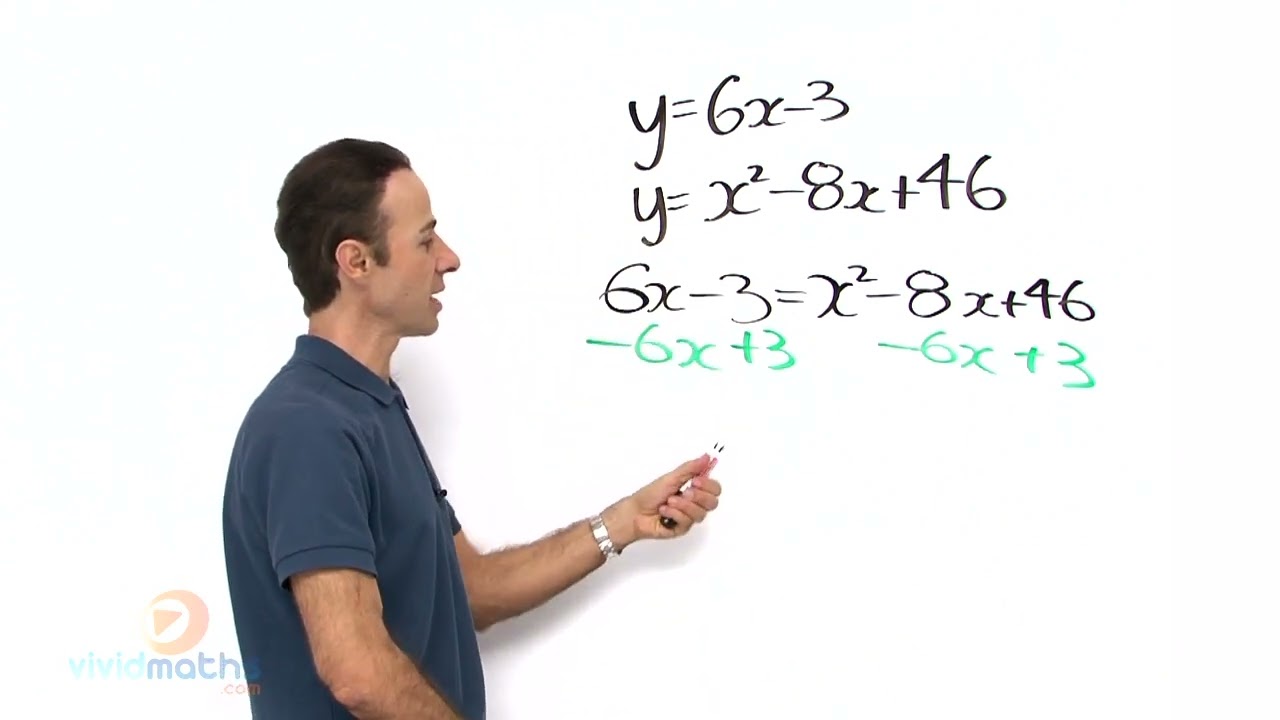 y=6x-3
y=x²-8x+46
6x-3=x²-8x+46
-6x+3 -6x+3
vividmaths
.com